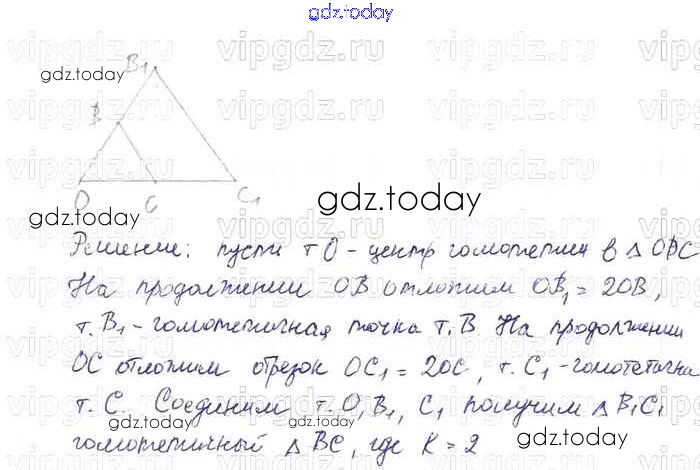 gdz.today
vipgdz.ru vipgdz.ru
B₁
gdz.today
B
O C C₁
gdz.today
gdz.today
Решение: пусть т O - центр гомотетии в △ OBC
На продолжении OB отложим OB₁ = 2OB,
т. B₁ - гомотетичная точка т. B. На продолжении
OC отложим отрезок OC₁ = 2OC, т. C₁ - гомотетична
т. C. Соединим т. O, B₁, C₁ получим △ B₁C₁
гомотетичный △ BC, где K = 2
gdz.today
gdz.today